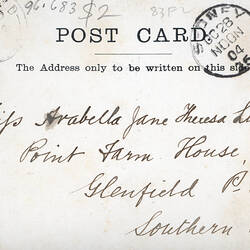 96.683 $2
83P2
SYDNEY
POST CARD
NOON
04
The Address only to be written on this sid
ifs Arabella Jane Theresa
Point Farm House
Glenfield P
Southern